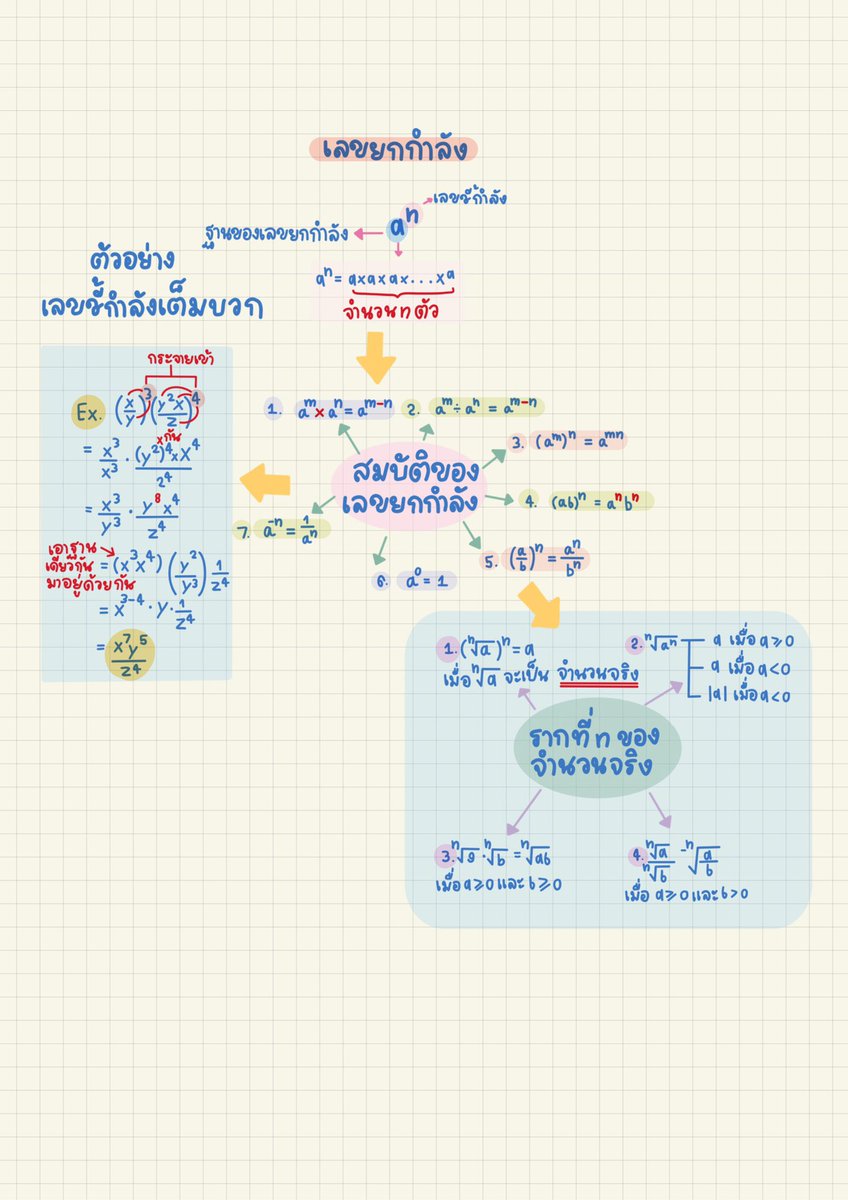 เลขยกกำลัง
เลขชี้กำลัง
aⁿ
ฐานของเลขยกกำลัง
aⁿ = a×a×a×...×a
จำนวน n ตัว
ตัวอย่าง
เลขชี้กำลังเต็มบวก
กระจายเข้า
Ex. (x/y)³(y²x/z)⁴
×กัน
= x³/x³ · (y²)⁴×x⁴/z⁴
= x³/y³ · y⁸x⁴/z⁴
เอาฐาน
เดียวกัน
มาอยู่ด้วยกัน
= (x³x⁴)(y²/y³) 1/z⁴
= x³⁻⁴ · y · 1/z⁴
= x⁷y⁵/z⁴
สมบัติของ
เลขยกกำลัง
1. aᵐ × aⁿ = aᵐ⁻ⁿ
2. aᵐ ÷ aⁿ = aᵐ⁻ⁿ
3. (aᵐ)ⁿ = aᵐⁿ
4. (ab)ⁿ = aⁿbⁿ
5. (a/b)ⁿ = aⁿ/bⁿ
6. a⁰ = 1
7. a⁻ⁿ = 1/aⁿ
รากที่ n ของ
จำนวนจริง
1. (ⁿ√a)ⁿ = a
เมื่อ ⁿ√a จะเป็น จำนวนจริง
2. ⁿ√aⁿ
a เมื่อ a ≥ 0
a เมื่อ a < 0
|a| เมื่อ a < 0
3. ⁿ√a · ⁿ√b = ⁿ√ab
เมื่อ a ≥ 0 และ b ≥ 0
4. ⁿ√a/ⁿ√b - ⁿ√a/b
เมื่อ a ≥ 0 และ b > 0